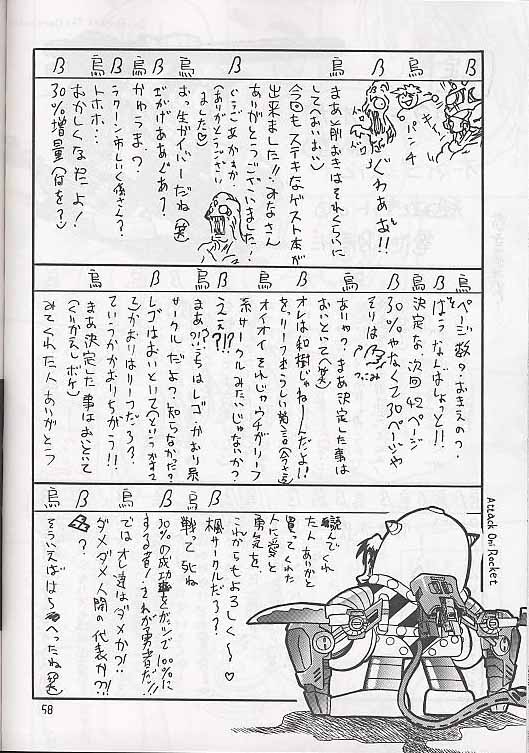 B
ぐわああぁ!!
パンチ
烏
まあ前おきはそれくらいに
してへおいおい
今回もステキなゲスト本が
出来ました!!みなさん
ありがとうございました!
B
(ありがとうござい
ました
烏
おっ生ガイバーだね(笑)
B
ぐがげああぐあ?
烏
かゆうま?
B
ラクーン市しいく係さん?
烏
トホホ…
おかしくなったよ!
B
30%増量(何を?)
B
ページ数?おきえの?
烏
ばうなんばしょっと!!
B
決定な、次回42ページ
30%やなくて30ページや
それは
つっこみ
烏
ありゃ?まあ決定した事は
おいといて(笑)
B
オレは和樹じゃねーんだよ!!
烏
オイオイそれじゃウチがリーフ
系サークルみたいじゃないか?
B
ええ?!?
烏
まあ?!うちはレゴかおり系
サークルだよ?知らなかった?
B
レゴはおいといて
かおりはリーフだろ?
烏
ていうかかおりちがう!!
まあ決定した事はおいといて
(くりかえしボケ)
みてくれた人ありがとう
読んでくれ
た人ありがと
買ってくれた
人に愛と
勇気を、
これからもよろしく〜♡
B
楓サークルだろ?
烏
戦って死ね
B
30%の成功率をガッツで100%に
する者!それが勇者だ!!
烏
ではオレ達はダメか?!
ダメダメ人間の代表か?!
B
?
烏
そういえばはらへったね(笑)
Attack On! Rocket
58